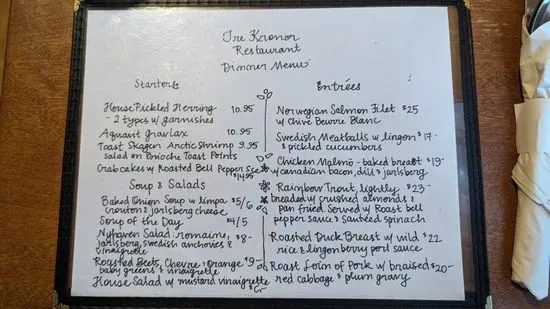 Tre Kronor
Restaurant
Dinner Menu
Starters
House Pickled Herring 10.95
- 2 types w/ garnishes
Aquavit Gravlax 10.95
Toast Skagen Arctic Shrimp 9.95
Salad on Brioche Toast Points
Crab cakes w/ Roasted Bell Pepper Sce
$14.95
Soup & Salads
Baked Onion Soup w/ limpa $5/6
crouton & jarlsberg cheese
Soup of the Day $4/5
Nyhaven Salad: romaine, $8-
jarlsberg, swedish anchovies &
vinaigrette
Roasted Beets, Chevre, Orange $9-
baby greens & vinaigrette
House Salad w/ mustard vinaigrette
Entrées
Norwegian Salmon Filet $25
w/ Chive Beurre Blanc
Swedish Meatballs w/ lingon $17-
& pickled cucumbers
Chicken Malmö - baked breast $19-
w/ canadian bacon, dill & jarlsberg
Rainbow Trout, lightly $23-
breaded w/ crushed almonds &
pan fried. Served w/ Roast bell
pepper sauce & sauteed spinach
Roasted Duck Breast w/ wild $22
rice & lingonberry port sauce
Roast Loin of Pork w/ braised $20-
red cabbage & plum gravy